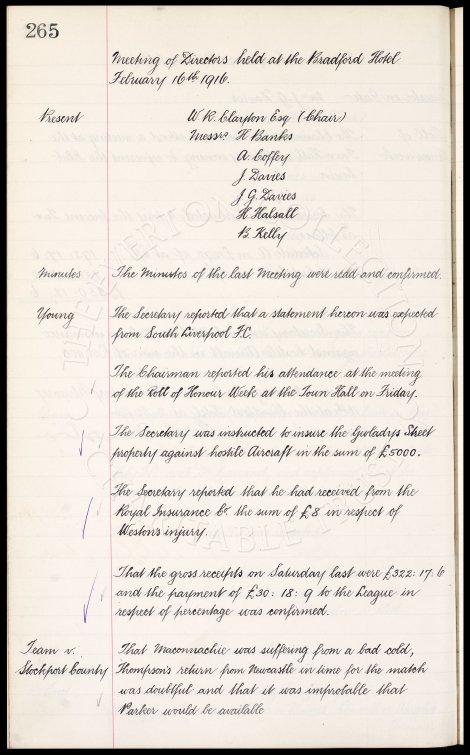 265
Meeting of Directors held at the Bradford Hotel
February 16th 1916.
Present W. R. Clayton Esq (Chair)
Messrs H. Banks
A. Coffey
J. Davies
J. G. Davies
H. Halsall
B. Kelly
Minutes The Minutes of the last Meeting were read and confirmed.
Young The Secretary reported that a statement hereon was expected
from South Liverpool F.C.
The Chairman reported his attendance at the meeting
of the Roll of Honour Week at the Town Hall on Friday.
The Secretary was instructed to insure the Gwladys Street
property against hostile Aircraft in the sum of £5000.
The Secretary reported that he had received from the
Royal Insurance Co. the sum of £8 in respect of
Weston's injury.
That the gross receipts on Saturday last were £322: 17: 6
and the payment of £30: 18: 9 to the League in
respect of percentage was confirmed.
Team v. That Maconnachie was suffering from a bad cold,
Stockport County Thompson's return from Newcastle in time for the match
was doubtful and that it was improbable that
Parker would be available
THE EVERTON COLLECTION
CHARITABLE TRUST